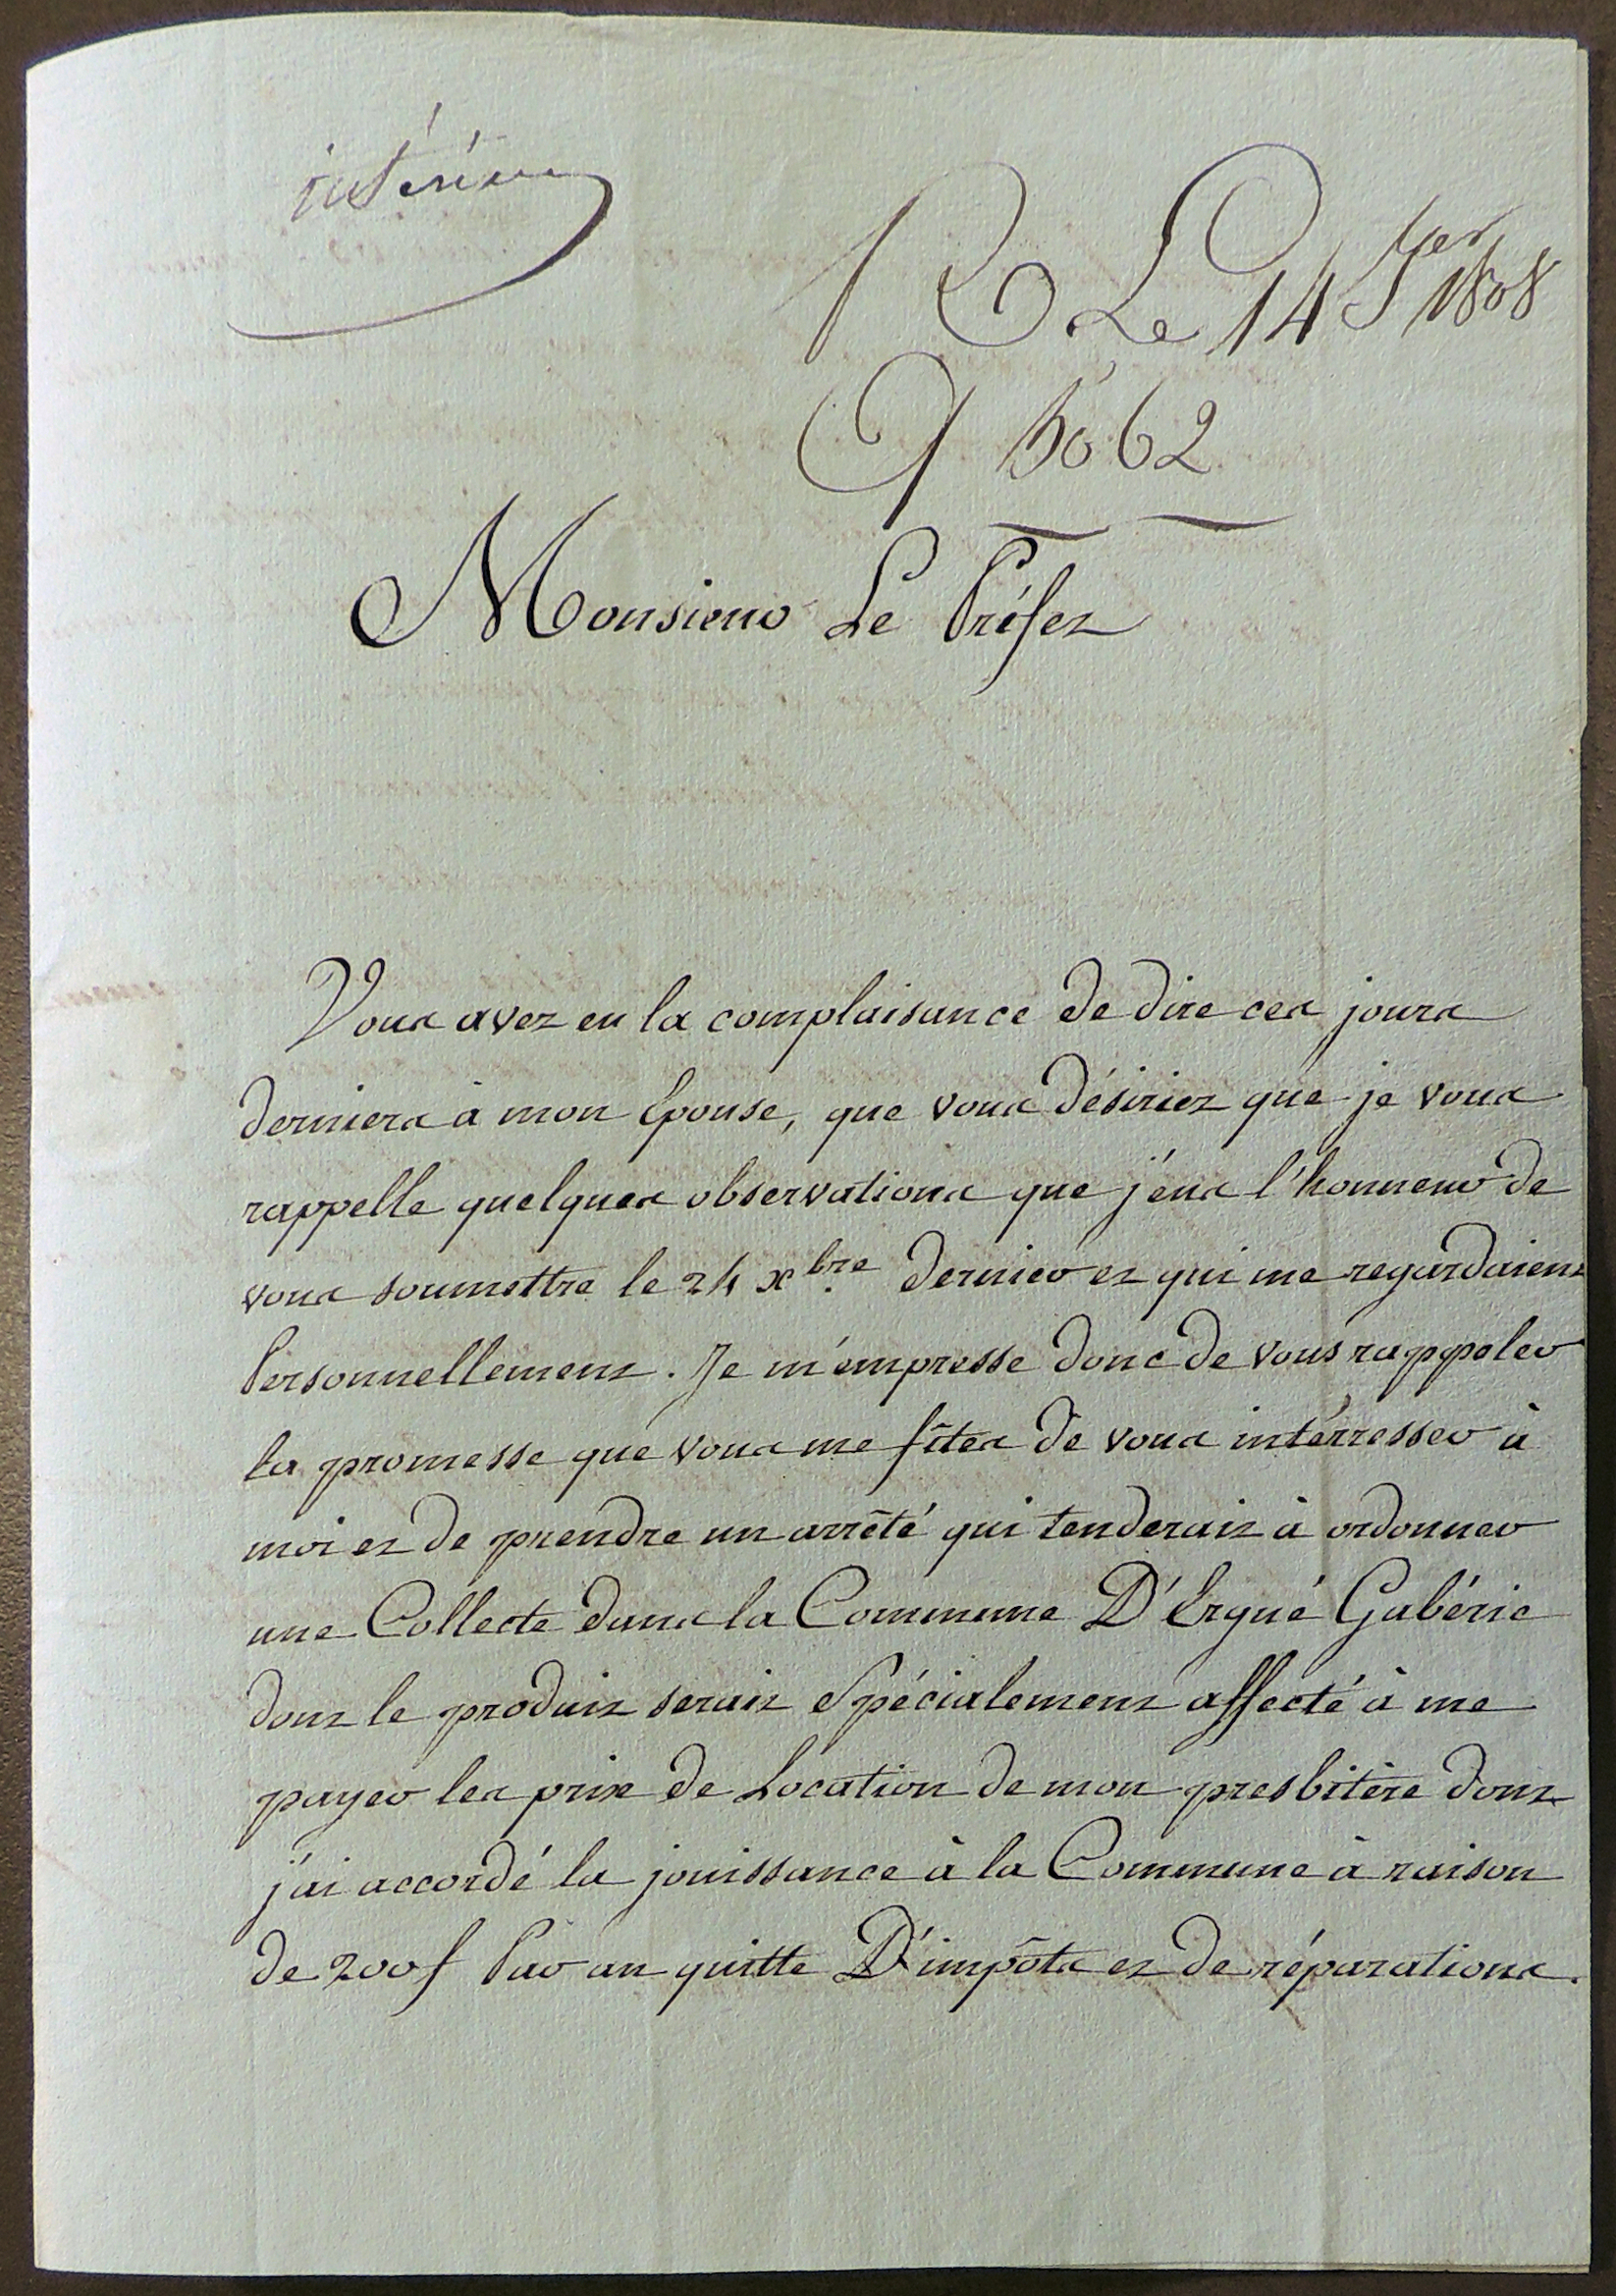 intérieur
R Le 14 Jer 1808
5062
Monsieur Le Préfet
Vous avez eu la complaisance de dire ces jours
derniers à mon Epouse, que vous désiriez que je vous
rappelle quelques observations que j'eus l'honneur de
vous soumettre le 24 xbre. dernier et qui me regardaient
Personnellement. Je m'empresse donc de vous rappeler
la promesse que vous me fîtes de vous intérresser à
moi et de prendre un arrêté qui tenderait à ordonner
une Collecte dans la Commune D'Ergué Gabéric
dont le produit serait Spécialement affecté à me
payer les prix de Location de mon presbitère dont
j'ai accordé la jouissance à la Commune à raison
de 200f Par an quitte D'impôts et de réparations.